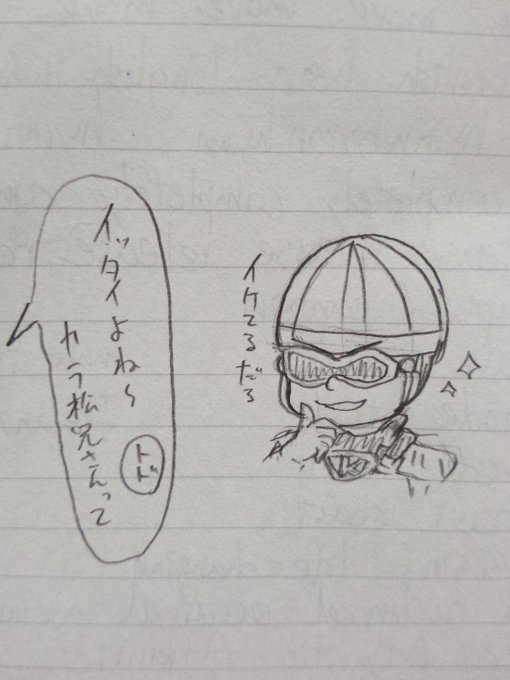 イケてるだろ
イッタイよね〜
カラ松兄さんって
トド